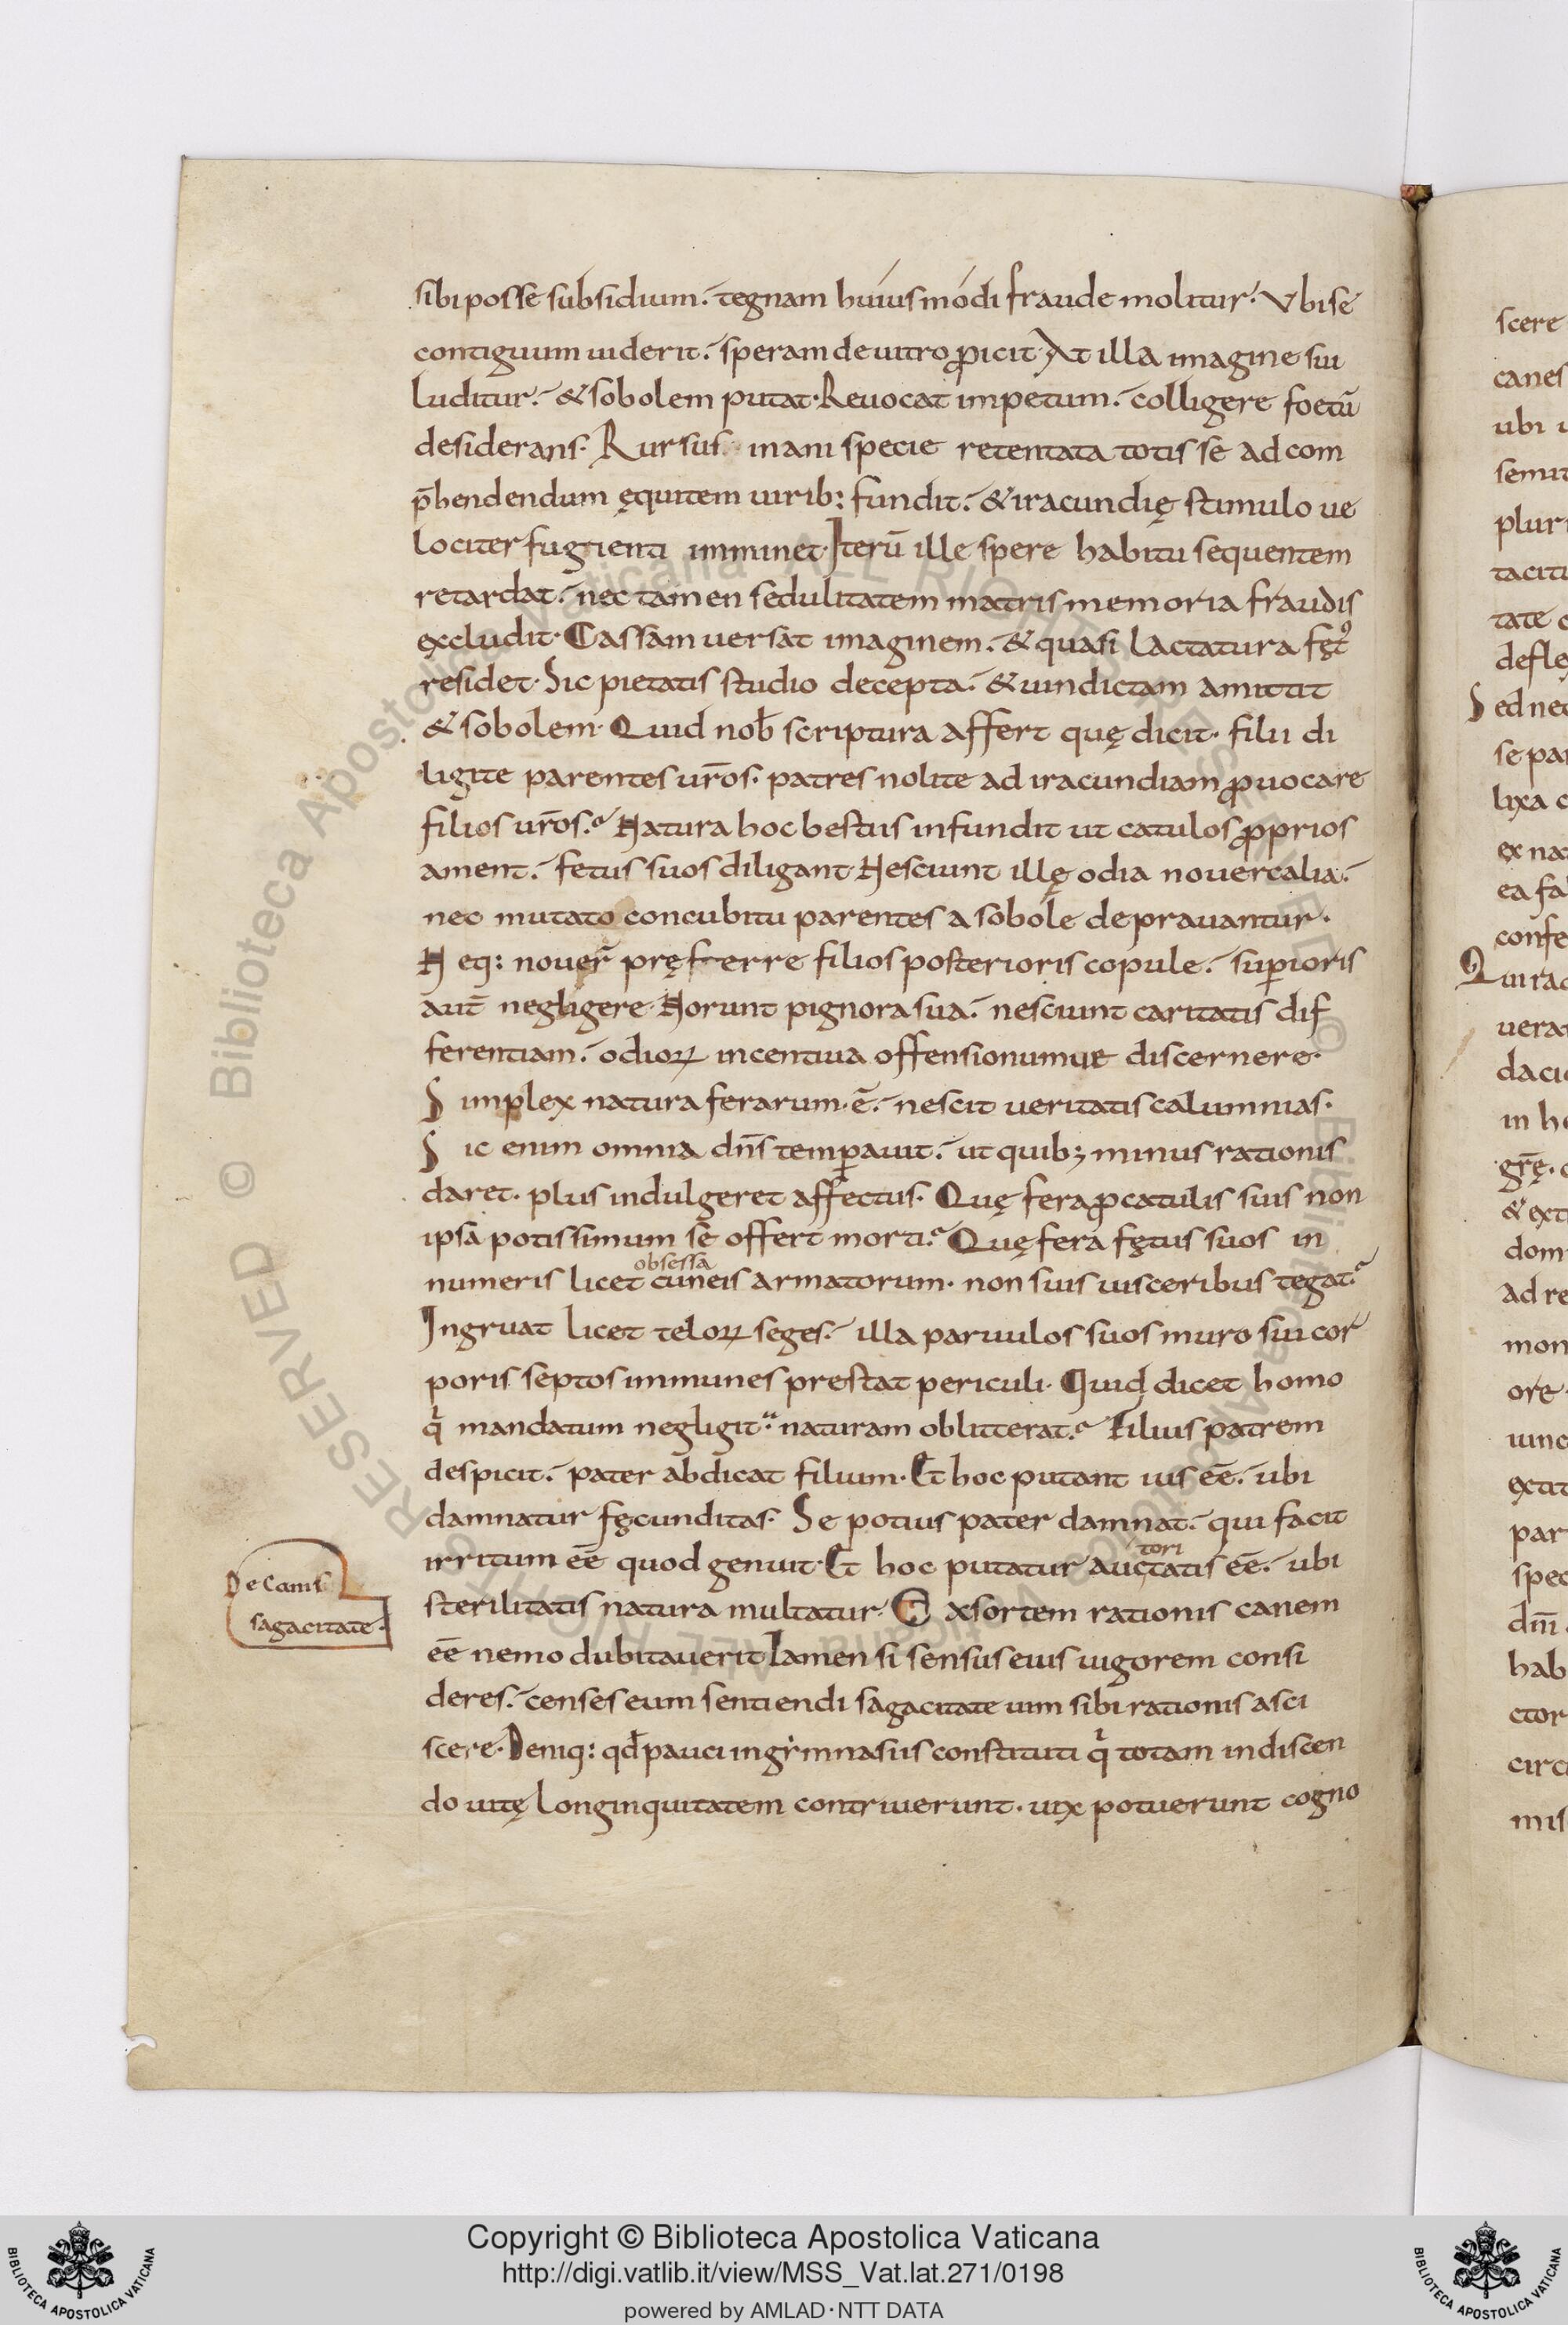 sibi posse subsidium. tegnam huiusmodi fraude molitur. Vbi se
contiguum uiderit. speram de uitro ꝓicit. At illa imagine sui
luditur. & sobolem putat. Reuocat impetum. colligere foetū
desiderans. Rursus inani specie retentata totis se ad com
p̄hendendum ęquitem uirib: fundit. & iracundię stimulo ue
lociter fugienti imminet. Iterū ille spere habitu sequentem
retardat. nec tamen sedulitatem matris memoria fraudis
excludit. Cassam uersat imaginem. & quasi lactatura fęt᷒
residet. Sic pietatis studio decepta. & uindictam amittit
& sobolem. Quid nob̄ scriptura affert quę dicit. filii di
ligite parentes ur̄os. patres nolite ad iracundiam ꝓuocare
filios ur̄os. Natura hoc bestiis infundit ut catulos ꝓprios
ament. fetus suos diligant. Nesciunt illę odia nouercalia.
nec mutato concubitu parentes a sobole deprauantur.
Neq: nouer̄ pręferre filios posterioris copule. suꝑioris
aut̄ negligere. Norunt pignora sua. nesciunt caritatis dif
ferentiam. odioꝝ incentiua offensionumue discernere.
Simplex natura ferarum. ē. nescit ueritatis calumnias.
Sic enim omnia dn̄s temꝑauit. ut quibꝫ minus rationis
daret. plus indulgeret affectus. Quę fera ꝓ catulis suis non
ipsa potissimum se offert morti. Quę fera fętus suos in
obsessa
numeris licet cuneis armatorum. non suis uisceribus tegat.
Ingruat licet teloꝝ seges. illa paruulos suos muro sui cor
poris septos immunes prestat periculi. Quid dicet homo
qͥ mandatum negligit. naturam oblitterat. Filius patrem
despicit. pater abdicat filium. Et hoc putant ius eē. ubi
damnatur fęcunditas. Se potius pater damnat. qui facit
tori
irritum eē quod genuit. Et hoc putatur auctatis eē. ubi
De canis
sagacitate.
sterilitatis natura multatur. Exsortem rationis canem
eē nemo dubitauerit. Tamen si sensus eius uigorem consi
deres. censes eum sentiendi sagacitate uim sibi rationis asci
scere. Deniq: qd̄ pauci in gẏmnasiis constituti qͥ totam in discen
do uitę longinquitatem contriuerunt. uix potuerunt cogno
scere
canes
ubi
semit
plur
tacit
tate
defle
Sed nec
se par
lixa
ex na
ea fa
confe
Qui rac
ueras
dacio
in h
gr̄ę.
& ext
dom
ad re
mon
ore
iunc
extit
par
spec
dn̄i
hab
ctor
circ
mis
Copyright © Biblioteca Apostolica Vaticana
http://digi.vatlib.it/view/MSS_Vat.lat.271/0198
powered by AMLAD·NTT DATA
BIBLIOTECA APOSTOLICA VATICANA
BIBLIOTECA APOSTOLICA VATICANA
© Biblioteca Apostolica Vaticana ALL RIGHTS RESERVED © Biblioteca Apostolica Vaticana ALL RIGHTS RESERVED